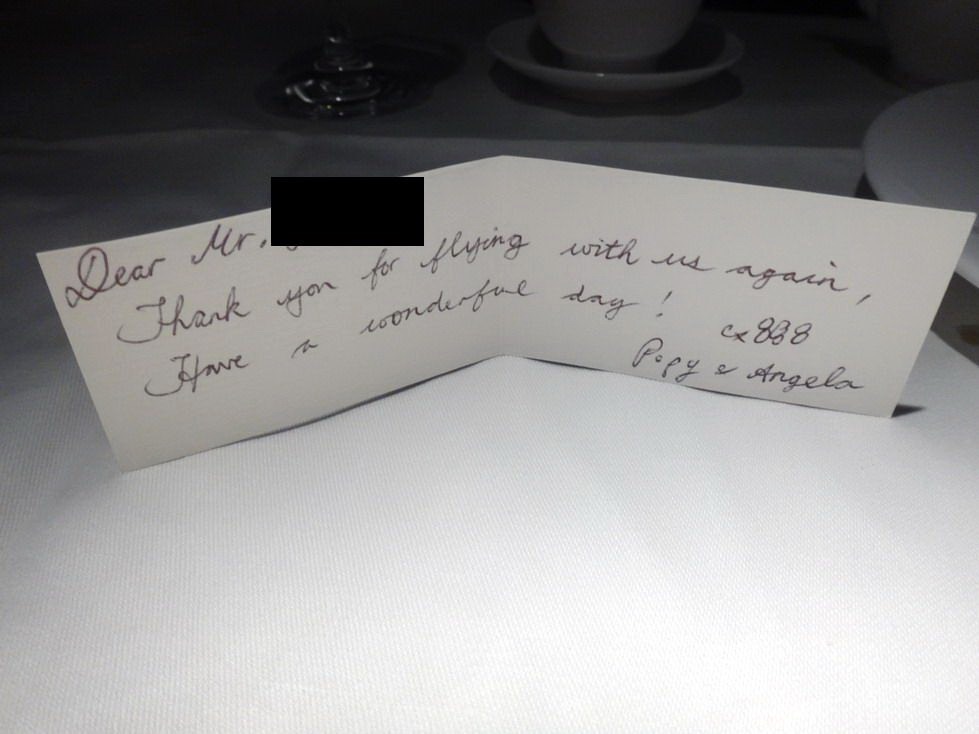 Dear Mr.
Thank you for flying with us again,
Have a wonderful day!
cx888
Popy & Angela